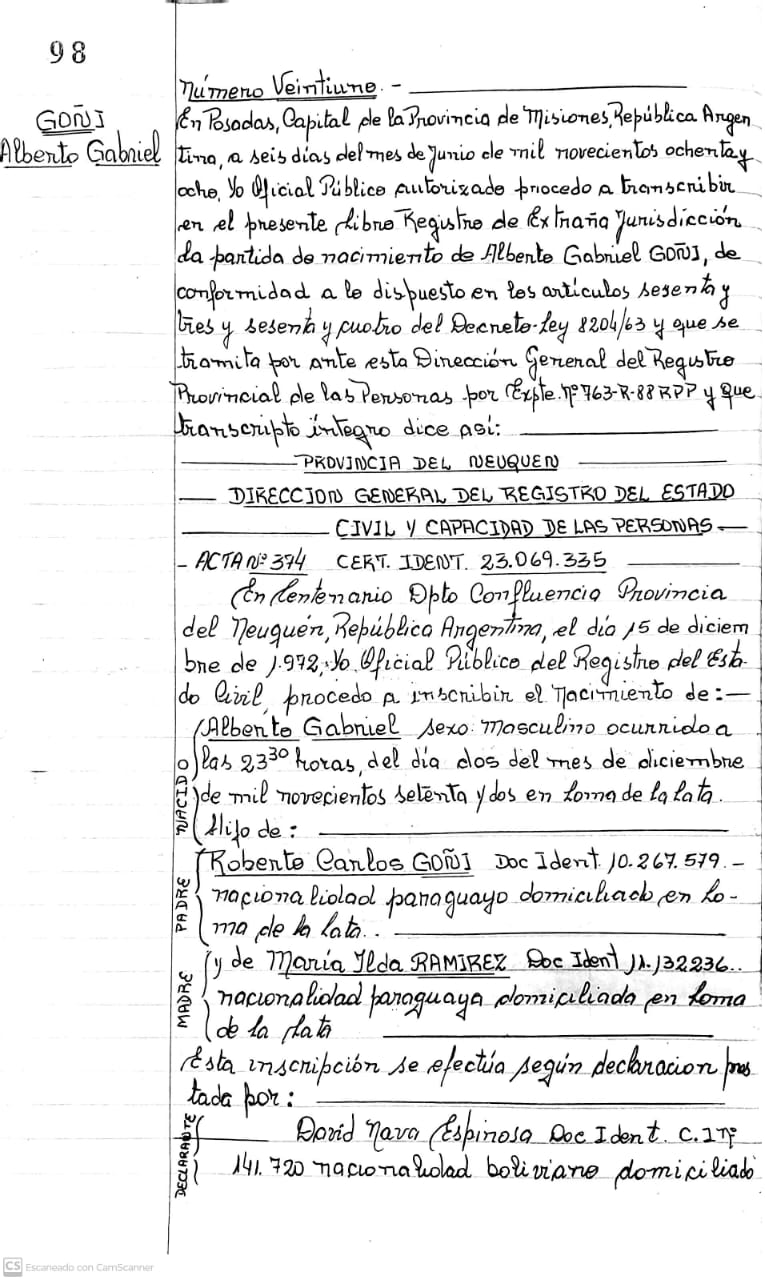 98
GOÑI
Alberto Gabriel
Número Veintiuno. -
En Posadas, Capital de la Provincia de Misiones, República Argen
tina, a seis días del mes de Junio de mil novecientos ochenta y
ocho, Yo Oficial Público autorizado procedo a transcribir
en el presente Libro Registro de Extraña Jurisdicción
la partida de nacimiento de Alberto Gabriel GOÑI, de
conformidad a lo dispuesto en los artículos sesenta y
tres y sesenta y cuatro del Decreto-Ley 8204/63 y que se
tramita por ante esta Dirección General del Registro
Provincial de las Personas por Expte. Nº 763-R-88 RPP y que
transcripto íntegro dice así:
PROVINCIA DEL NEUQUEN
DIRECCION GENERAL DEL REGISTRO DEL ESTADO
CIVIL Y CAPACIDAD DE LAS PERSONAS
- ACTA Nº 374 CERT. IDENT. 23.069.335
En Centenario Dpto Confluencia Provincia
del Neuquén, República Argentina, el día 15 de diciem
bre de 1.972, Yo, Oficial Público del Registro del Esta-
do Civil, procedo a inscribir el Nacimiento de: -
NACIDO
Alberto Gabriel sexo: masculino ocurrido a
las 23³⁰ horas, del día dos del mes de diciembre
de mil novecientos setenta y dos en Loma de la Lata.
Hijo de:
PADRE
Roberto Carlos GOÑI Doc Ident. 10.267.579. -
nacionalidad paraguayo domiciliado en Lo-
ma de la Lata..
MADRE
y de María Ilda RAMIREZ Doc Ident 11.132236..
nacionalidad paraguaya domiciliada en Loma
de la Lata
Esta inscripción se efectúa según declaracion pres
tada por:
DECLARANTE
David Nava Espinosa Doc Ident. C.I Nº
141.720 nacionalidad boliviano domiciliado
CS Escaneado con CamScanner